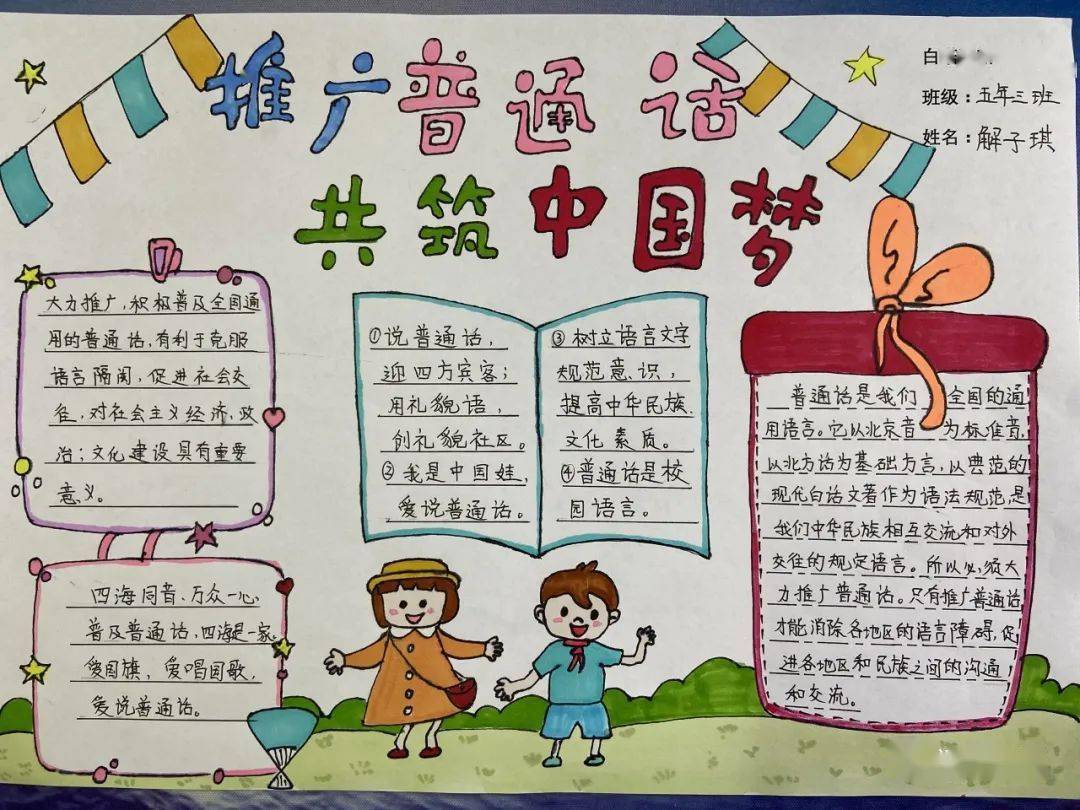 推广普通话
共筑中国梦
白
班级：五年三班
姓名：解子琪
大力推广，积极普及全国通
用的普通话，有利于克服
语言隔阂，促进社会交
往，对社会主义经济，政
治；文化建设具有重要
意义。
四海同音、万众一心，
普及普通话，四海是一家。
爱国旗，爱唱国歌，
爱说普通话。
①说普通话，
迎四方宾客；
用礼貌语，
创礼貌社区。
②我是中国娃，
爱说普通话。
③树立语言文字
规范意识，
提高中华民族
文化素质。
④普通话是校
园语言。
普通话是我们全国的通
用语言。它以北京音为标准音，
以北方话为基础方言，以典范的
现代白话文著作为语法规范，是
我们中华民族相互交流和对外
交往的规定语言。所以必须大
力推广普通话。只有推广普通话
才能消除各地区的语言障碍，促
进各地区和民族之间的沟通
和交流。